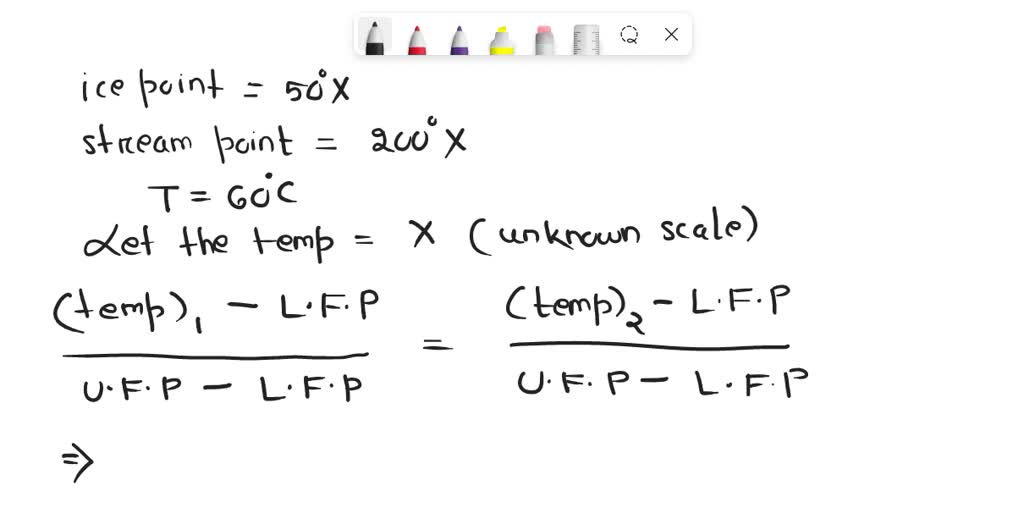 ice point = 50°X
stream point = 200°X
T = 60°C
Let the temp = X (unknown scale)
(temp)₁ - L.F.P / U.F.P - L.F.P = (temp)₂ - L.F.P / U.F.P - L.F.P
⇒